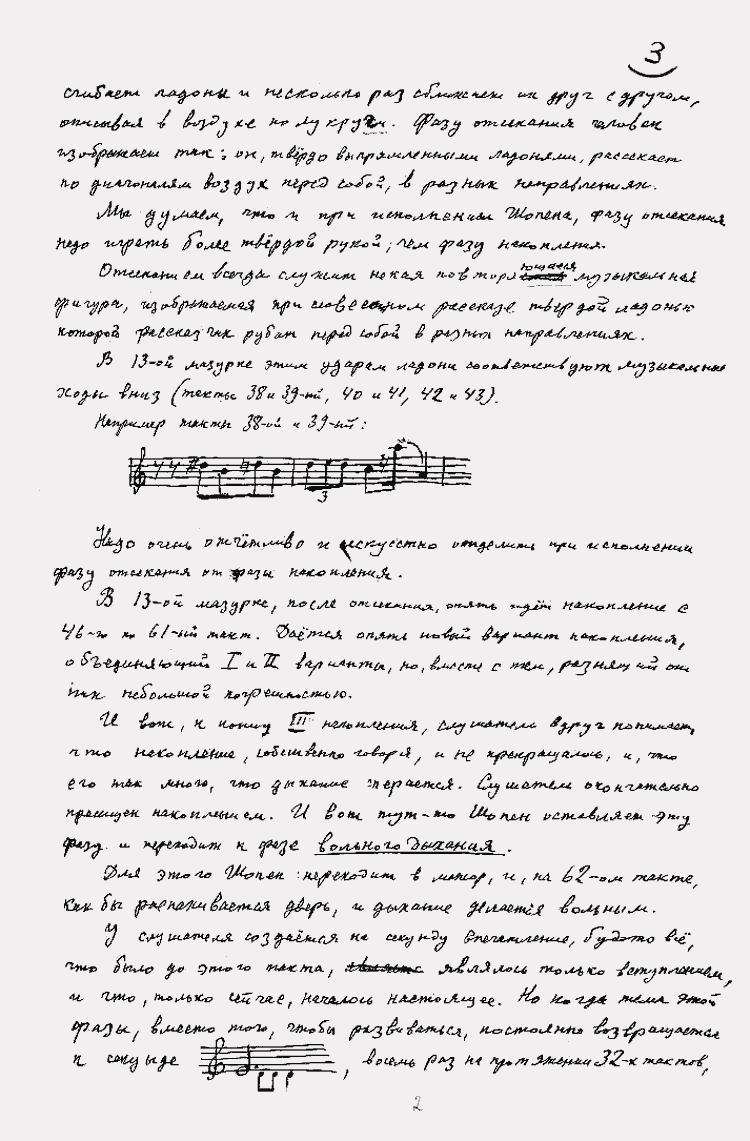 3
сгибает ладоны и несколько раз сближает их друг с другом,
описывая в воздухе полукруги. Фазу отсекания человек
изображает так: он, твёрдо выпрямленными ладонями, рассекает
по диагоналям воздух перед собой, в разных направлениях.
Мы думаем, что и при исполнении Шопена, фазу отсекания
надо играть более твёрдой рукой, чем фазу накопления.
Отсеканием всегда служит некая повторяющаяся музыкальная
фигура, изображаемая при словесном рассказе твердой ладонью
которой рассказчик рубит перед собой в разных направлениях.
В 13-ой мазурке этим ударам ладони соответствуют музыкальные
ходы вниз (такты 38 и 39-ый, 40 и 41, 42 и 43).
Например такты 38-ой и 39-ый:
3
Надо очень отчётливо и искусстно отделить при исполнении
фазу отсекания от фазы накопления.
В 13-ой мазурке, после отсекания, опять идёт накопление с
46-го по 61-ый такт. Даётся опять новый вариант накопления,
объединяющий I и II варианты, но, вместе с тем, разнящий от
них небольшой погрешностью.
И вот, к концу III накопления, слушатель вдруг понимает,
что накопление, собственно говоря, и не прекращалось, и, что
его так много, что дыхание спирается. Слушатель окончательно
пресыщен накоплением. И вот тут-то Шопен оставляет эту
фазу и переходит к фазе вольного дыхания.
Для этого Шопен переходит в мажор, и, на 62-ом такте,
как бы распахивается дверь, и дыхание делается вольным.
У слушателя создаётся на секунду впечатление, будто всё,
что было до этого такта, являлось только вступлением,
и что, только сейчас, началось настоящее. Но когда тема этой
фразы, вместо того, чтобы развиваться, постоянно возвращается
к секунде , восемь раз на протяжении 32-х тактов,
2